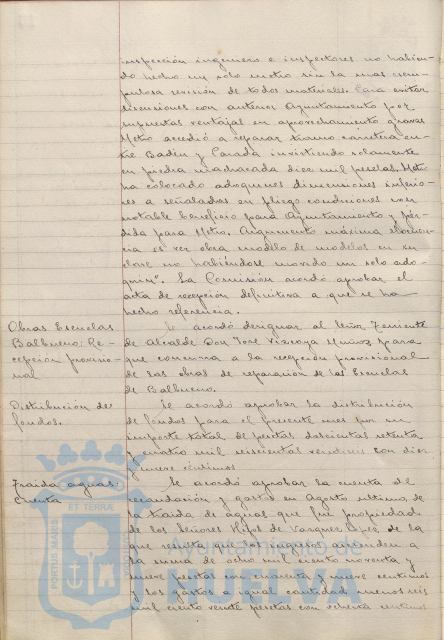 inspección ingeniero e inspectores no habién-
do hecho un solo metro sin la mas escru-
pulosa revisión de todos materiales. Para evitar
discusiones con anterior Ayuntamiento por
supuestas ventajas en aprovechamiento gravas
Metro accedió a reparar tramo carretera en-
tre Badén y Parada invirtiendo solamente
en piedra machacada diez mil pesetas. Metro
ha colocado adoquines dimensiones inferio-
res a señaladas en pliego condiciones con
notable beneficio para Ayuntamiento y pér-
dida para Metro. Argumento máxima elocuen-
cia es ver obra modelo de modelos en su
clase no habiéndose movido un solo ado-
quín". La Comisión acordó aprobar el
acta de recepción definitiva a que se ha
hecho referencia.
Obras Escuelas
Balbueno; Re-
cepción provisio-
nal
Se acordó designar al Teniente
de Alcalde Don José Vizcaya Muñoz para
que concurra a la recepción provisional
de las obras de reparación de las Escuelas
de Balbueno.
Distribución de
fondos.
Se acordó aprobar la distribución
de fondos para el presente mes por un
importe total de pesetas doscientas setenta
y cuatro mil seiscientas con diez
y nueve céntimos
Traida aguas:
Cuenta
Se acordó aprobar la cuenta de
recaudación y gastos en Agosto último, de
la traida de aguas que fué propiedad
de los Señores Hijos de Vázquez López, de la
que resulta que los ingresos ascienden a
la suma de ocho mil ciento noventa y
nueve pesetas con cincuenta y nueve centimos
y los gastos a igual cantidad menos seis
mil ciento veinte pesetas con ochenta centimos
PORTUS MARIS
ET TERRAE
Ayuntamiento de
HUELVA